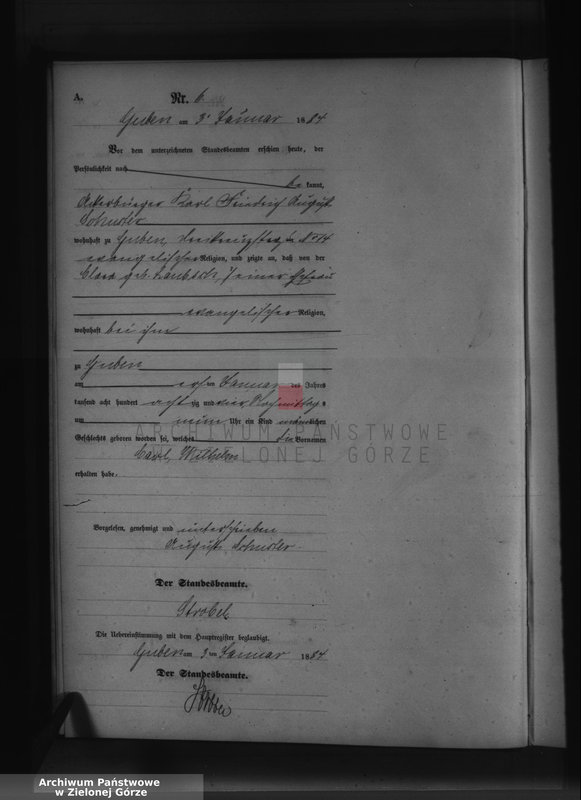 A.
Nr. 6.
Guben am 3t Januar 1884
Vor dem unterzeichneten Standesbeamten erschien heute, der
Persönlichkeit nach
be kannt,
Ackerbürger Karl Friedrich August
Schuster
wohnhaft zu Guben, No 14
evangelischer Religion, und zeigte an, daß von der
Clara geb. Laubsch, seiner Ehefrau
evangelischer Religion,
wohnhaft bei ihm
zu Guben
am ersten Januar des Jahres
tausend acht hundert achtzig und vier Nachmittags
um neun Uhr ein Kind männlichen
Geschlechts geboren worden sei, welches die Vornamen
Carl Wilhelm
erhalten habe.
Vorgelesen, genehmigt und unterschrieben
August Schuster.
Der Standesbeamte.
Strobel
Die Uebereinstimmung mit dem Hauptregister beglaubigt.
Guben am 3 ten Januar 1884
Der Standesbeamte.
ARCHIWUM PAŃSTWOWE
W ZIELONEJ GÓRZE
Archiwum Państwowe
w Zielonej Górze